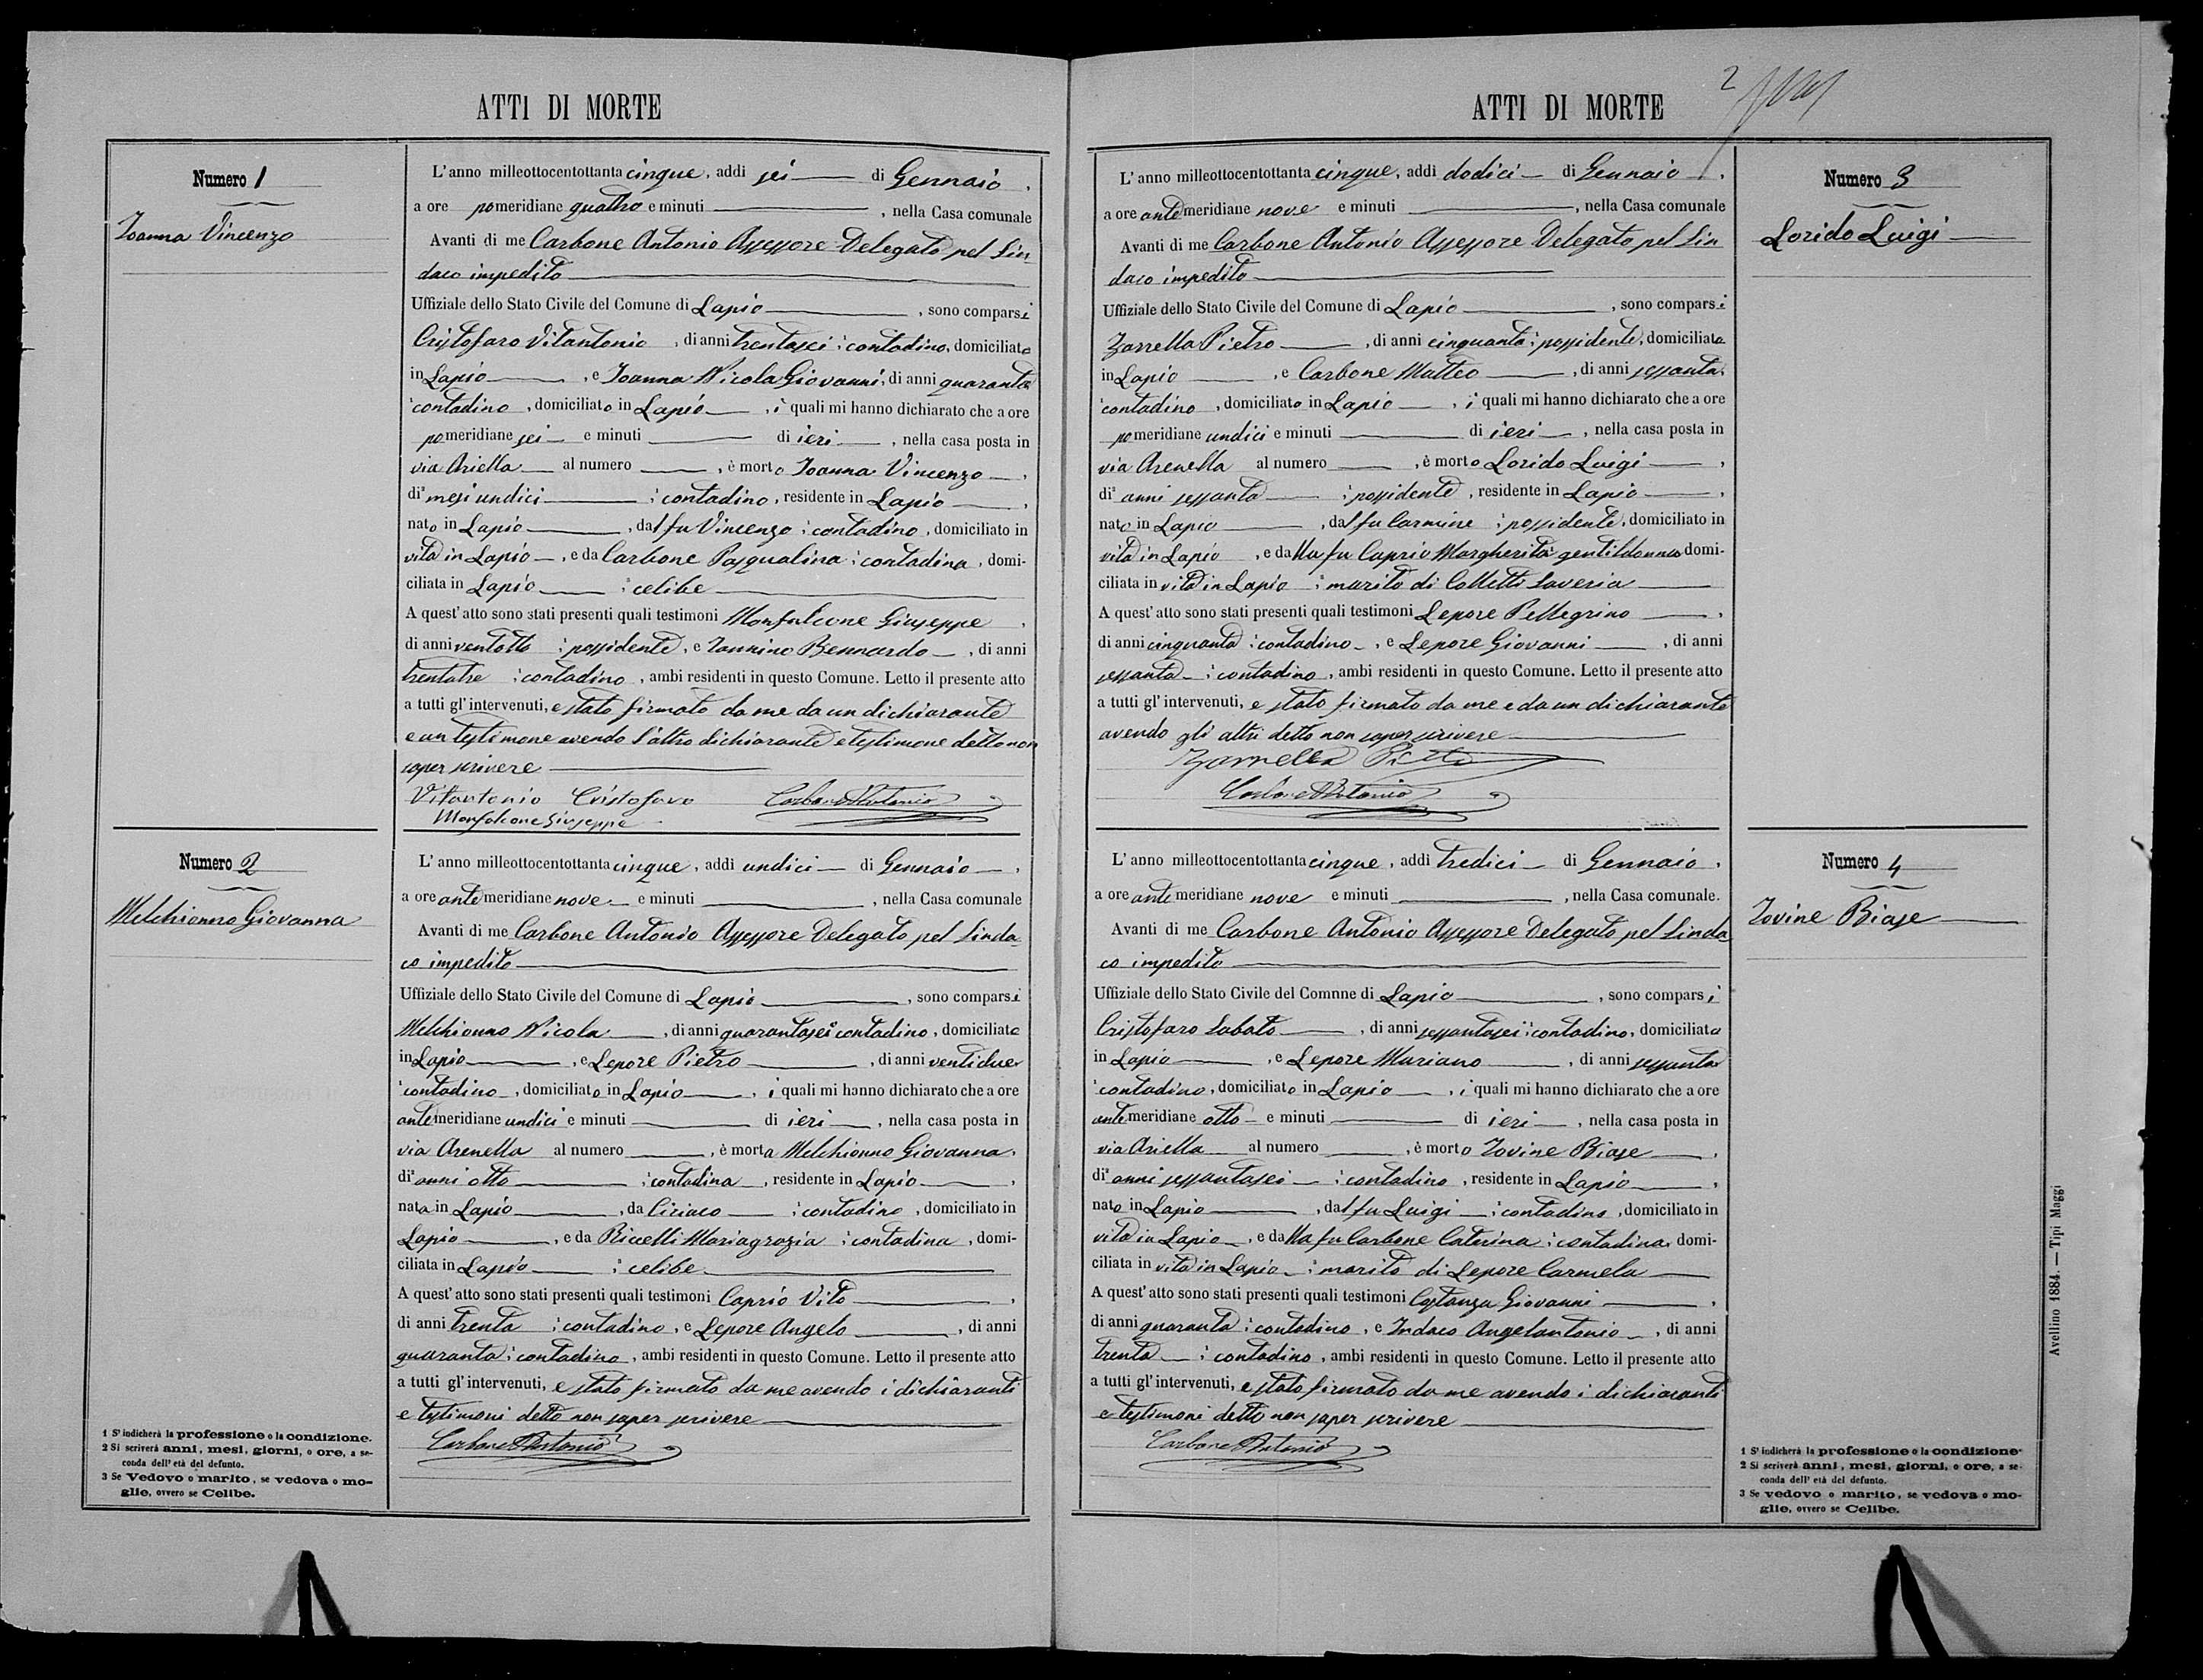 ATTI DI MORTE
Numero 1
Ioanna Vincenzo
L'anno milleottocentottantacinque, addi sei di Gennaio,
a ore pomeridiane quattro e minuti , nella Casa comunale
Avanti di me Carbone Antonio Assessore Delegato pel Sin
daco impedito
Uffiziale dello Stato Civile del Comune di Lapio , sono comparsi
Cristofaro Vitantonio , di anni trentasei contadino, domiciliato
in Lapio , e Ioanna Nicola Giovanni, di anni quaranta
contadino , domiciliato in Lapio , i quali mi hanno dichiarato che a ore
pomeridiane sei e minuti di ieri , nella casa posta in
via Ariella al numero , è morto Ioanna Vincenzo ,
di² mesi undici contadino, residente in Lapio ,
nato in Lapio , dal fu Vincenzo contadino, domiciliato in
vita in Lapio , e da Carbone Pasqualina contadina, domi-
ciliata in Lapio celibe
A quest'atto sono stati presenti quali testimoni Monfalcone Giuseppe ,
di anni ventotto possidente, e Iannino Bennardo , di anni
trentatre contadino , ambi residenti in questo Comune. Letto il presente atto
a tutti gl'intervenuti, e stato firmato da me da un dichiarante
e un testimone avendo l'altro dichiarante e testimone detto non
saper scrivere
Vitantonio Cristofaro Carbone Antonio
Monfalcone Giuseppe
Numero 2
Melchionno Giovanna
L'anno milleottocentottantacinque, addi undici di Gennaio ,
a ore antemeridiane nove e minuti , nella Casa comunale
Avanti di me Carbone Antonio Assessore Delegato pel Sinda
co impedito
Uffiziale dello Stato Civile del Comune di Lapio , sono comparsi
Melchionno Nicola , di anni quarantasei contadino, domiciliato
in Lapio , e Lepore Pietro , di anni ventidue
contadino , domiciliato in Lapio , i quali mi hanno dichiarato che a ore
antemeridiane undici e minuti di ieri , nella casa posta in
via Arenella al numero , è morta Melchionno Giovanna,
di² anni otto contadina , residente in Lapio ,
nata in Lapio , da Ciriaco contadino , domiciliato in
Lapio , e da Riccelli Mariagrazia contadina , domi-
ciliata in Lapio ³ celibe
A quest'atto sono stati presenti quali testimoni Caprio Vito ,
di anni trenta contadino, e Lepore Angelo , di anni
quaranta contadino , ambi residenti in questo Comune. Letto il presente atto
a tutti gl'intervenuti, e stato firmato da me avendo i dichiaranti
e testimoni detto non saper scrivere
Carbone Antonio
1 S'indicherà la professione o la condizione.
2 Si scriverà anni, mesi, giorni, o ore, a se-
conda dell'età del defunto.
3 Se Vedovo o marito, se vedova o mo-
glie, ovvero se Celibe.
ATTI DI MORTE
2
L'anno milleottocentottantacinque, addi dodici di Gennaio ,
a ore antemeridiane nove e minuti , nella Casa comunale
Avanti di me Carbone Antonio Assessore Delegato pel Sin
daco impedito
Uffiziale dello Stato Civile del Comune di Lapio , sono comparsi
Zarrella Pietro , di anni cinquanta possidente, domiciliato
in Lapio , e Carbone Matteo , di anni sessanta
contadino , domiciliato in Lapio , i quali mi hanno dichiarato che a ore
pomeridiane undici e minuti di ieri , nella casa posta in
via Arenella al numero , è morto Lorido Luigi ,
di² anni sessanta possidente , residente in Lapio ,
nato in Lapio , dal fu Carmine possidente, domiciliato in
vita in Lapio , e dalla fu Caprio Margherita gentildonna domi-
ciliata in vita in Lapio marito di Colletti Saveria
A quest'atto sono stati presenti quali testimoni Lepore Pellegrino ,
di anni cinquanta contadino , e Lepore Giovanni , di anni
sessanta contadino , ambi residenti in questo Comune. Letto il presente atto
a tutti gl'intervenuti, e stato firmato da me e da un dichiarante
avendo gli altri detto non saper scrivere
Zarrella Pietro
Carbone Antonio
Numero 3
Lorido Luigi
L'anno milleottocentottantacinque, addi tredici di Gennaio ,
a ore antemeridiane nove e minuti , nella Casa comunale.
Avanti di me Carbone Antonio Assessore Delegato pel Sinda
co impedito
Uffiziale dello Stato Civile del Comnne di Lapio , sono comparsi
Cristofaro Sabato , di anni sessantasei contadino, domiciliato
in Lapio , e Lepore Mariano , di anni sessanta
contadino, domiciliato in Lapio , i quali mi hanno dichiarato che a ore
antemeridiane otto e minuti di ieri , nella casa posta in
via Ariella al numero , è morto Iovine Biase ,
di² anni sessantasei contadino , residente in Lapio ,
nato in Lapio , dal fu Luigi contadino , domiciliato in
vita in Lapio , e dalla fu Carbone Caterina contadina domi-
ciliata in vita in Lapio marito di Lepore Carmela
A quest'atto sono stati presenti quali testimoni Costanza Giovanni ,
di anni quaranta contadino , e Indaco Angelantonio , di anni
trenta contadino , ambi residenti in questo Comune. Letto il presente atto
a tutti gl'intervenuti, e stato firmato da me avendo i dichiaranti
e testimoni detto non saper scrivere
Carbone Antonio
Numero 4
Iovine Biase
1 S'indicherà la professione o la condizione
2 Si scriverà anni, mesi, giorni, o ore, a se-
conda dell'età del defunto.
3 Se vedovo o marito, se vedova o mo-
glie, ovvero se Celibe.
Avellino 1884. — Tipi Maggi